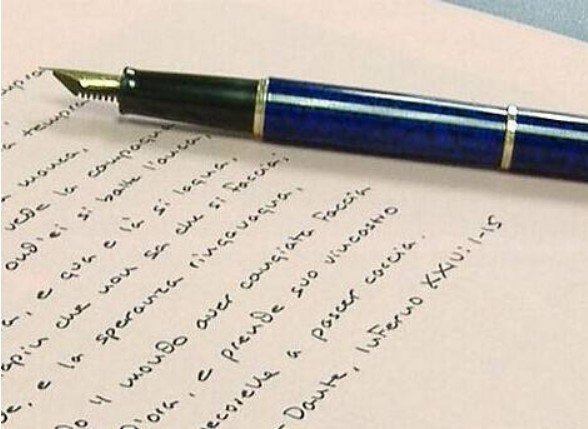 tempra
manca,
vede la campagna
ond'ei si batte l'anca,
, e qua e là si lagna,
tapin che non sa che si faccia;
, e la speranza ringavagna,
'l mondo aver cangiata faccia
d'ora, e prende suo vincastro
pecorelle a pascer caccia.
- Dante, Inferno XXIV: 1-15